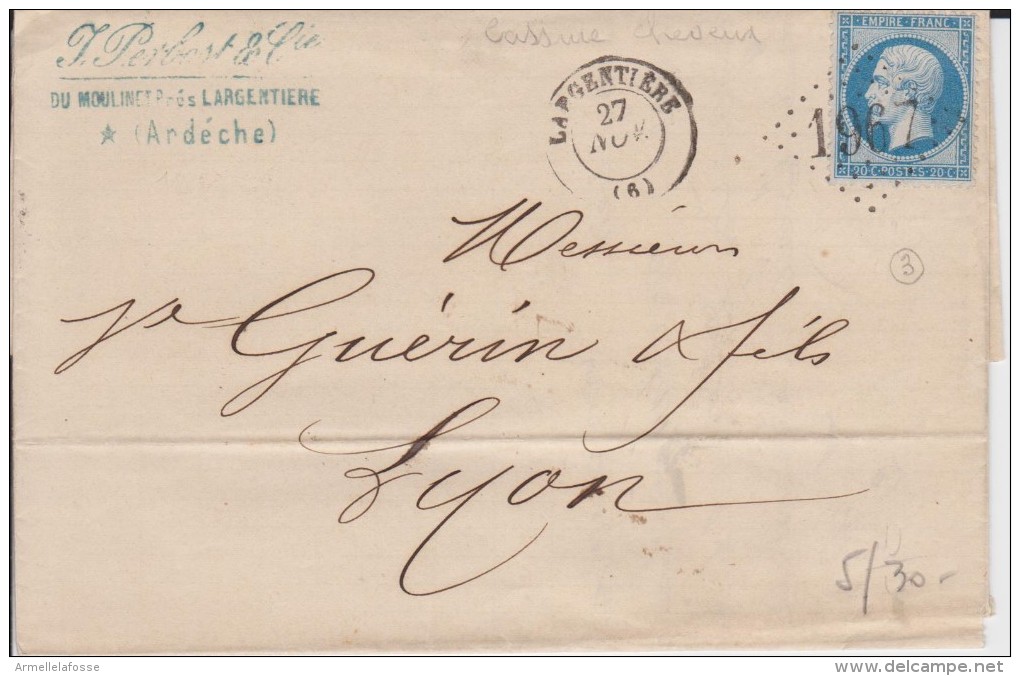 J. Perbost & Cie
DU MOULINET Prés LARGENTIERE
★ (Ardéche)
Cassure cheveux
LARGENTIÈRE
27
NOV.
(6)
EMPIRE FRANC
1967
20 C POSTES 20 C
Messieurs
Guérin & fils
Lyon
3
5/30-
Armellelafosse
www.delcampe.net